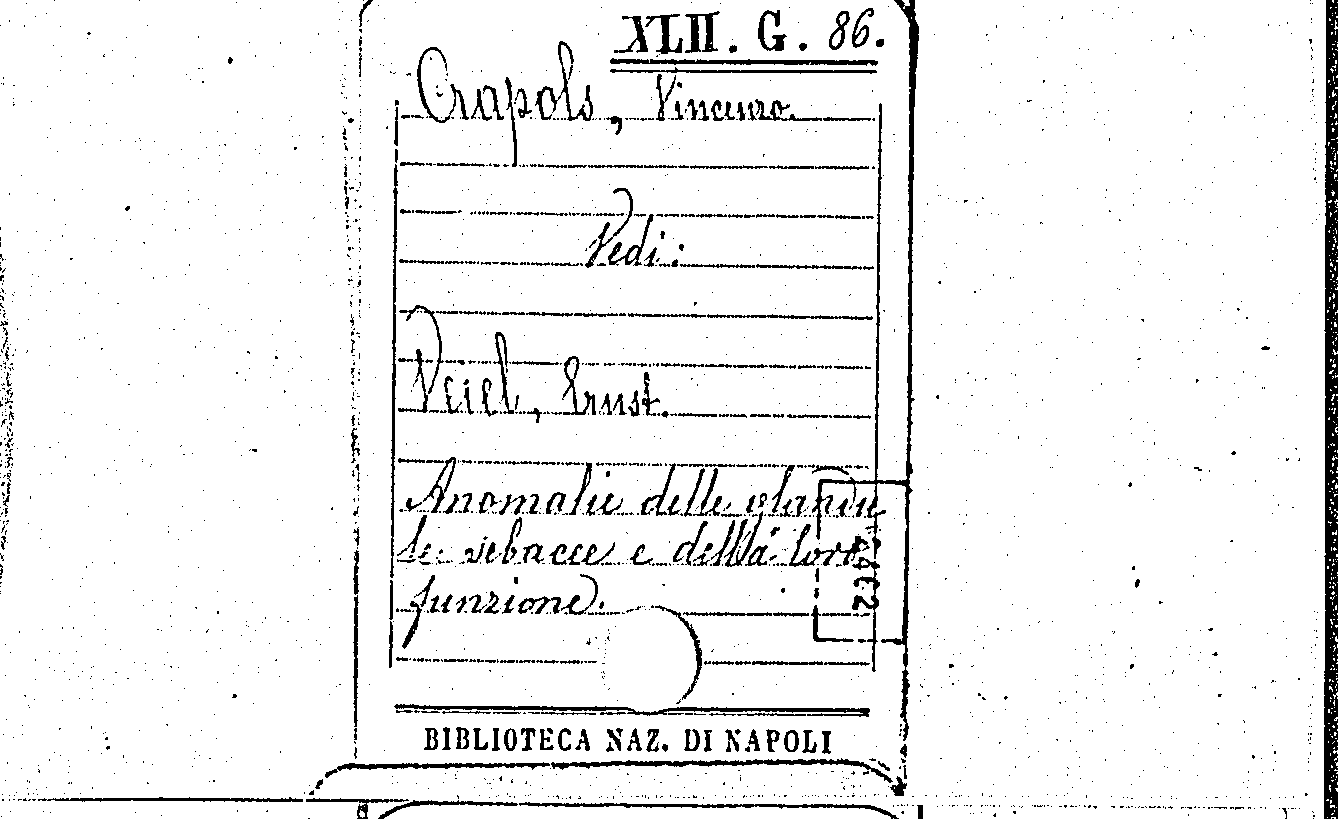 XLII. G. 86.
Crapols, Vincenzo.
Vedi:
Veiel, Ernst.
Anomalie delle glandu
le sebacee e della loro
funzione.
BIBLIOTECA NAZ. DI NAPOLI